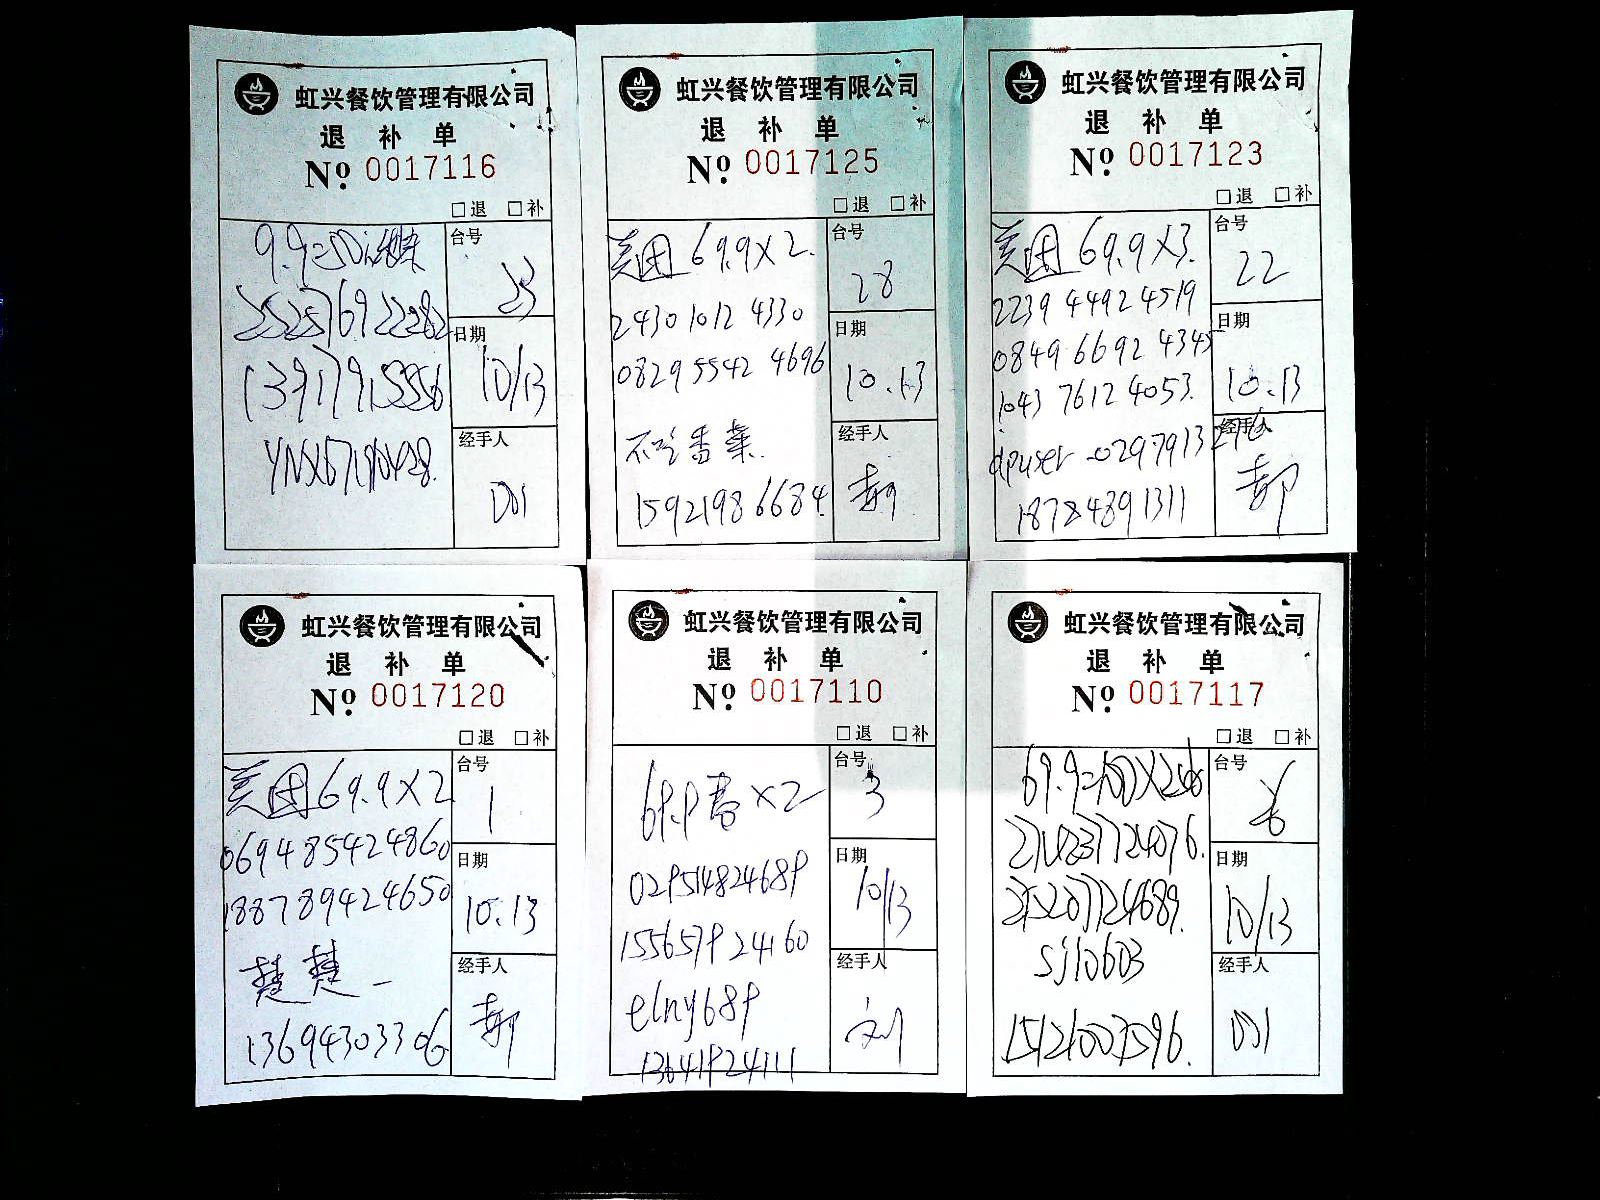 虹兴餐饮管理有限公司
退 补 单
№ 0017116
□退 □补
台号
23
日期
10/13
经手人
001
虹兴餐饮管理有限公司
退 补 单
№ 0017125
□退 □补
美团 69.9×2.
2430 1012 4330
0829 5542 4696
不吃香菜.
15921986684.
台号
28
日期
10.13
经手人
郝
虹兴餐饮管理有限公司
退 补 单
№ 0017123
□退 □补
美团 69.9×3.
2239 4492 4519
0849 6692 4345
1043 7612 4053.
dpuser-0297913276
18784891311
台号
22
日期
10.13
经手人
郝
虹兴餐饮管理有限公司
退 补 单
№ 0017120
□退 □补
美团 69.9×2
069485424860
188789424650
楚楚_
13694303306
台号
1
日期
10.13
经手人
郝
虹兴餐饮管理有限公司
退 补 单
№ 0017110
□退 □补
029514824689
155657924160
elny689
13641924111
台号
3
日期
10/13
经手人
刘
虹兴餐饮管理有限公司
退 补 单
№ 0017117
□退 □补
sj10603
15121007596.
台号
日期
10/13
经手人
001